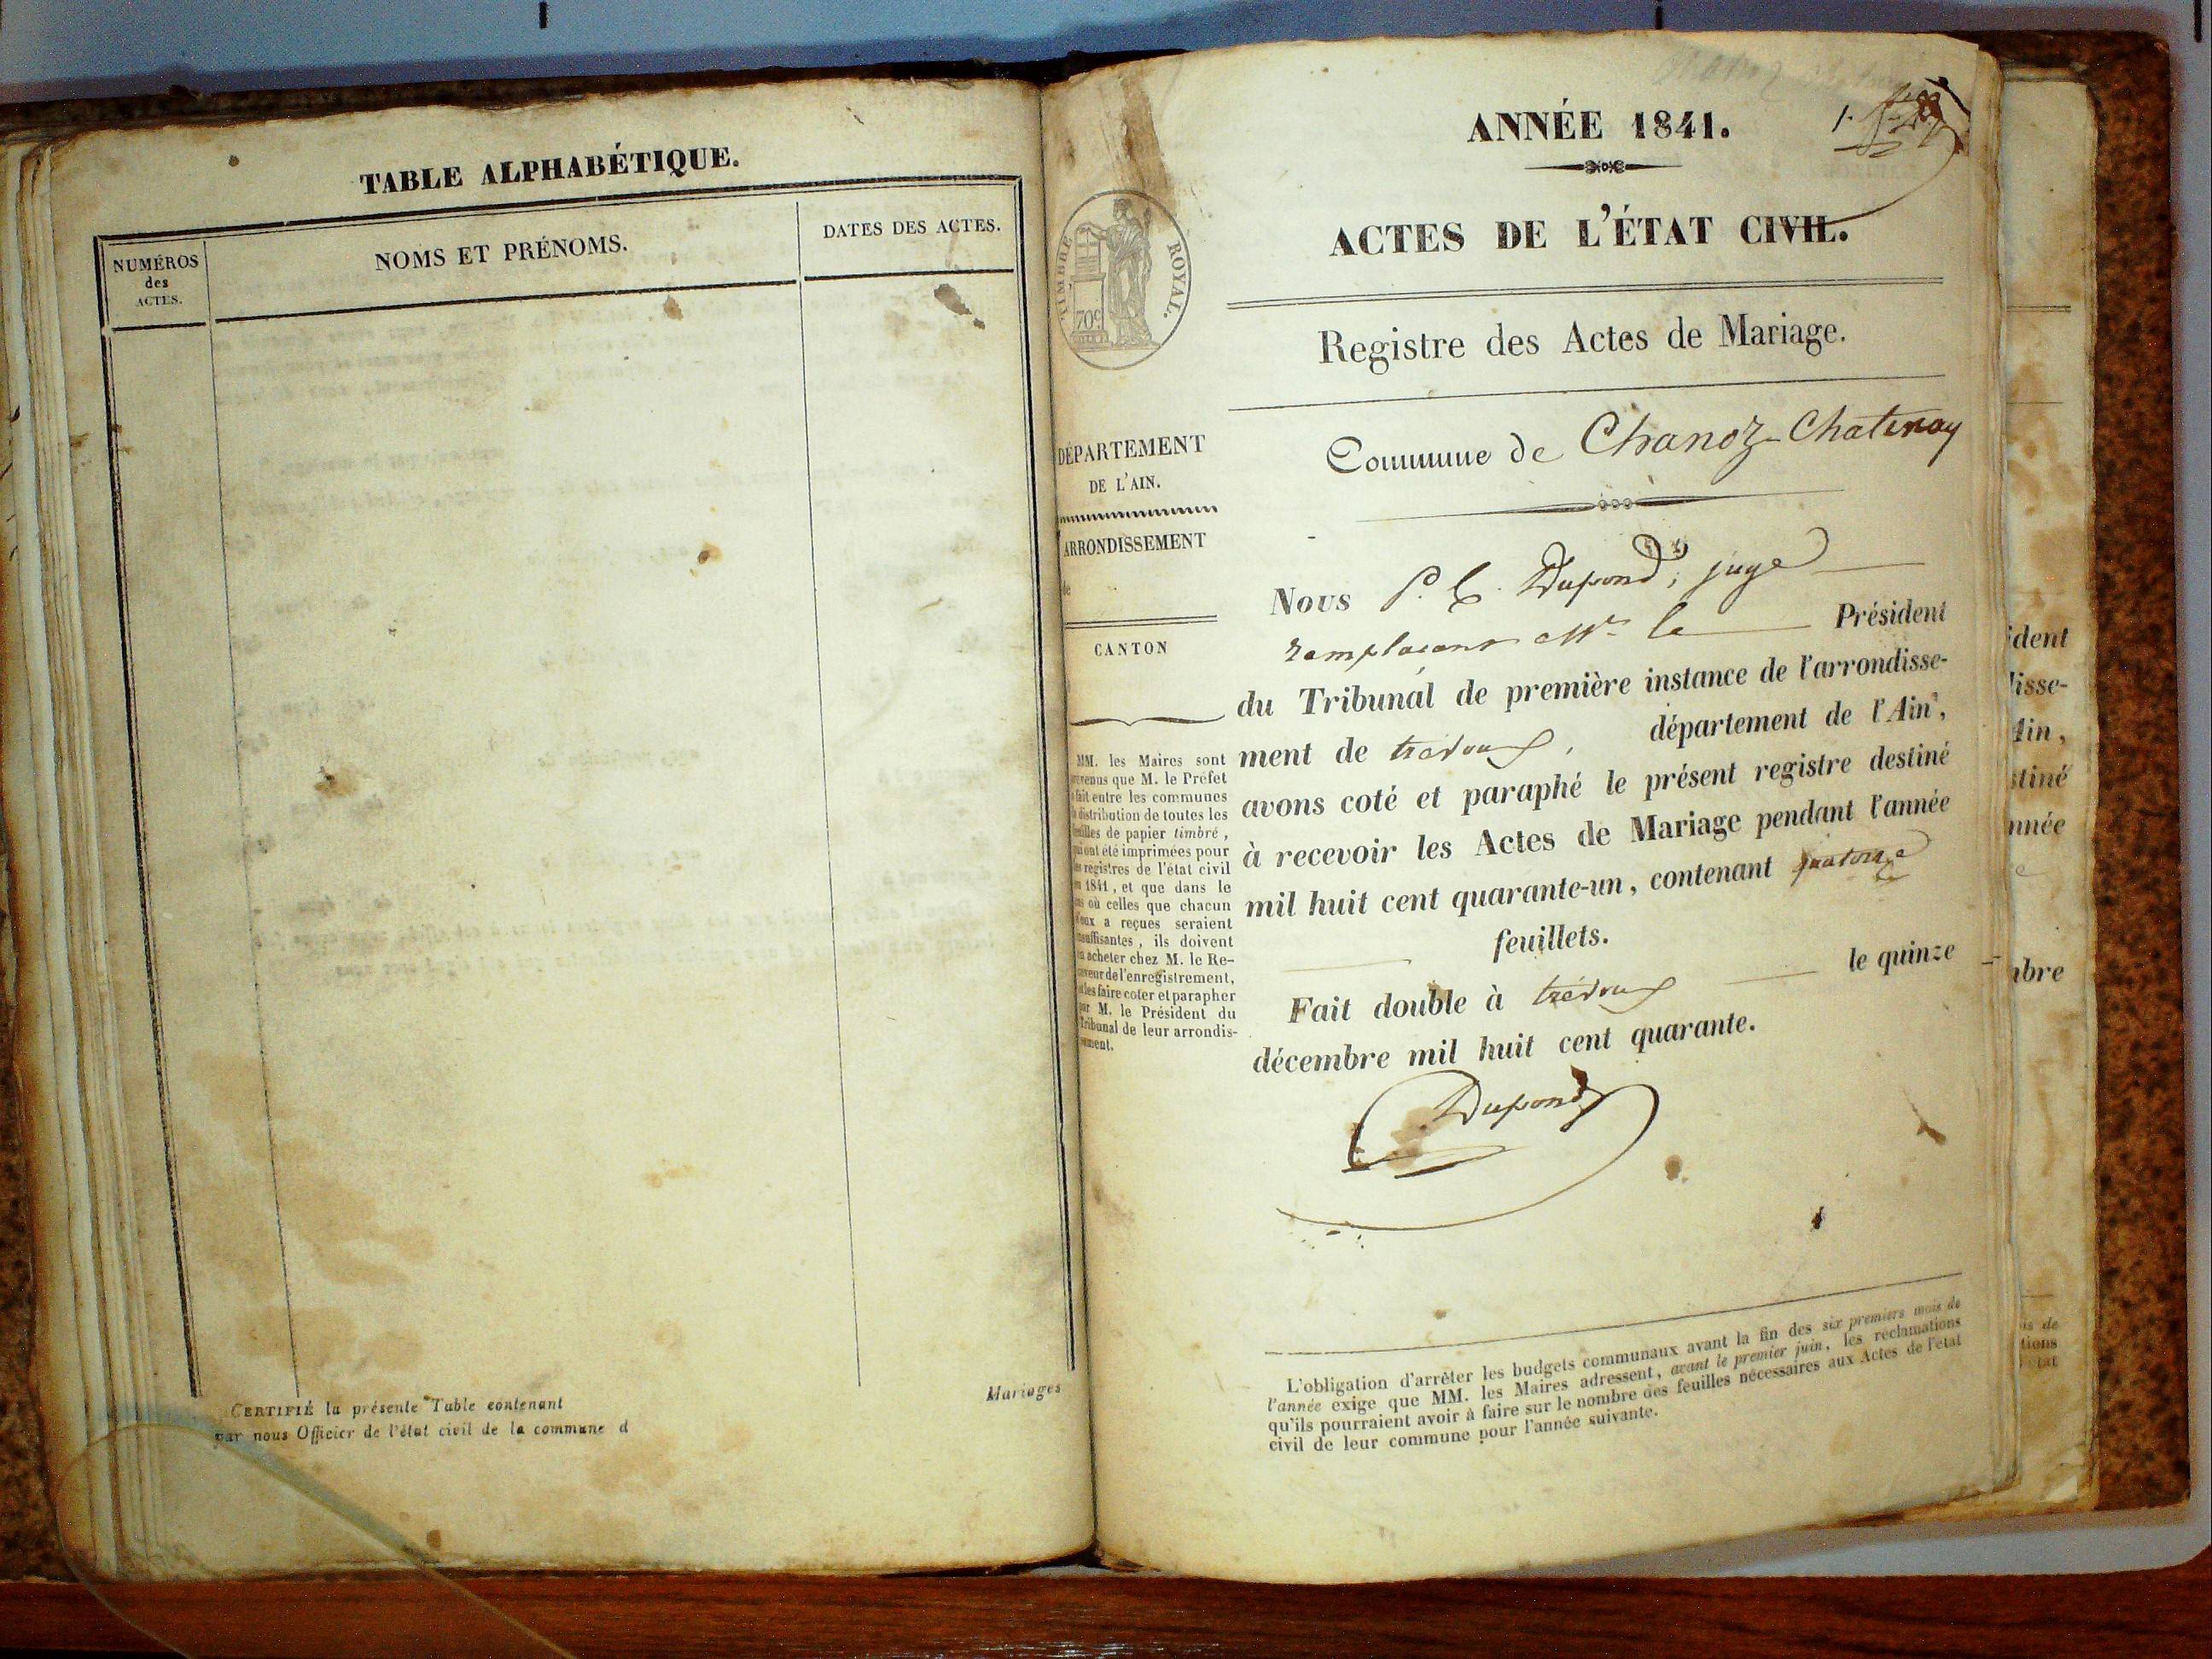 TABLE ALPHABÉTIQUE.
NUMÉROS
des
ACTES.
NOMS ET PRÉNOMS.
DATES DES ACTES.
CERTIFIÉ la présente Table contenant
par nous Officier de l'état civil de la commune d
Mariages
ANNÉE 1841.
ACTES DE L'ÉTAT CIVIL.
TIMBRE ROYAL.
70c
Registre des Actes de Mariage.
Commune de Chanoz-Chatenay
DÉPARTEMENT
DE L'AIN.
ARRONDISSEMENT
de
CANTON
MM. les Maires sont
prévenus que M. le Préfet
a fait entre les communes
la distribution de toutes les
feuilles de papier timbré,
qui ont été imprimées pour
les registres de l'état civil
en 1841, et que dans le
cas où celles que chacun
d'eux a reçues seraient
insuffisantes, ils doivent
en acheter chez M. le Re-
ceveur de l'enregistrement,
et les faire coter et parapher
par M. le Président du
Tribunal de leur arrondis-
sement.
Nous P. C. Dupond, juge
remplaçant Mr le Président
du Tribunal de première instance de l'arrondisse-
ment de trévoux, département de l'Ain,
avons coté et paraphé le présent registre destiné
à recevoir les Actes de Mariage pendant l'année
mil huit cent quarante-un, contenant quatorze
feuillets.
Fait double à trévoux le quinze
décembre mil huit cent quarante.
Dupond
L'obligation d'arrêter les budgets communaux avant la fin des six premiers mois de
l'année exige que MM. les Maires adressent, avant le premier juin, les réclamations
qu'ils pourraient avoir à faire sur le nombre des feuilles nécessaires aux Actes de l'état
civil de leur commune pour l'année suivante.
ident
disse-
Ain,
stiné
nnée
mbre
is de
tions
l'état